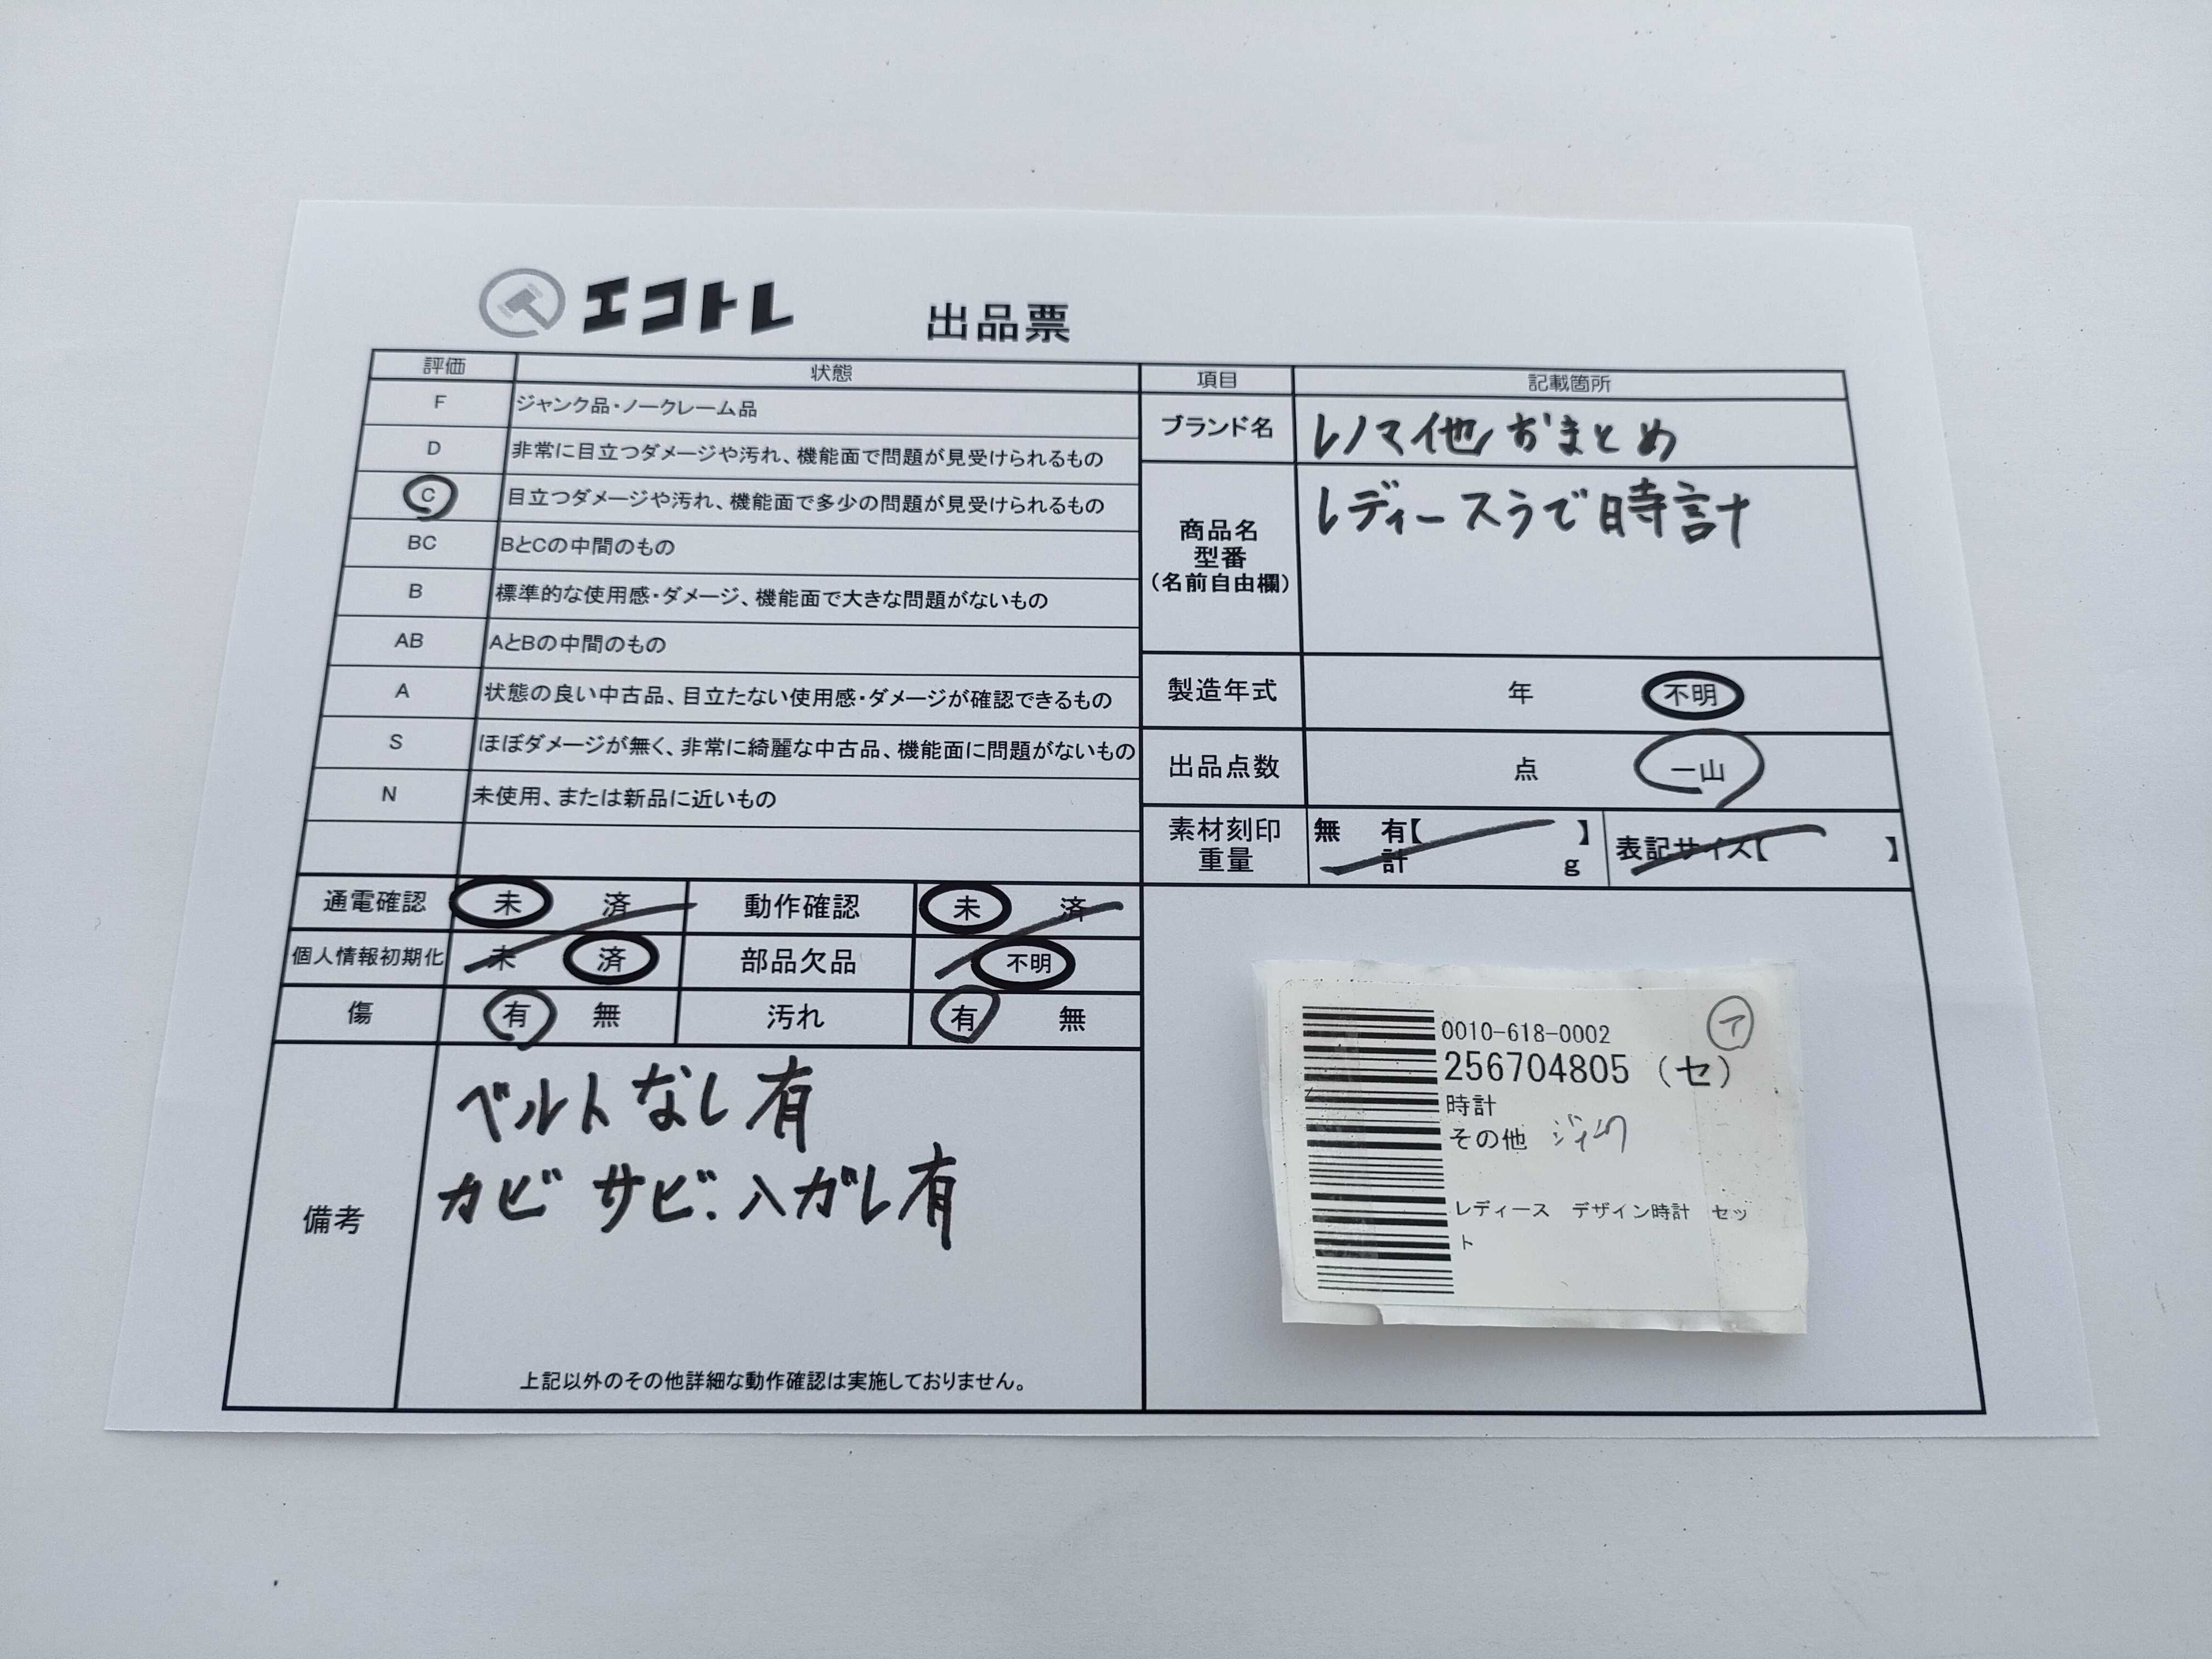 エコトレ 出品票
評価 状態
F ジャンク品・ノークレーム品
D 非常に目立つダメージや汚れ、機能面で問題が見受けられるもの
C 目立つダメージや汚れ、機能面で多少の問題が見受けられるもの
BC BとCの中間のもの
B 標準的な使用感・ダメージ、機能面で大きな問題がないもの
AB AとBの中間のもの
A 状態の良い中古品、目立たない使用感・ダメージが確認できるもの
S ほぼダメージが無く、非常に綺麗な中古品、機能面に問題がないもの
N 未使用、または新品に近いもの
通電確認 未 済 動作確認 未 済
個人情報初期化 未 済 部品欠品 不明
傷 有 無 汚れ 有 無
備考
ベルトなし有
カビ サビ.ハガレ有
上記以外のその他詳細な動作確認は実施しておりません。
項目 記載箇所
ブランド名 レノマ他おまとめ
商品名
型番
(名前自由欄)
レディースうで時計
製造年式 年 不明
出品点数 点 一山
素材刻印 無 有【 】
重量 計 g
表記サイズ【 】
0010-618-0002
256704805 (セ)
時計
その他
レディース デザイン時計 セッ
ト